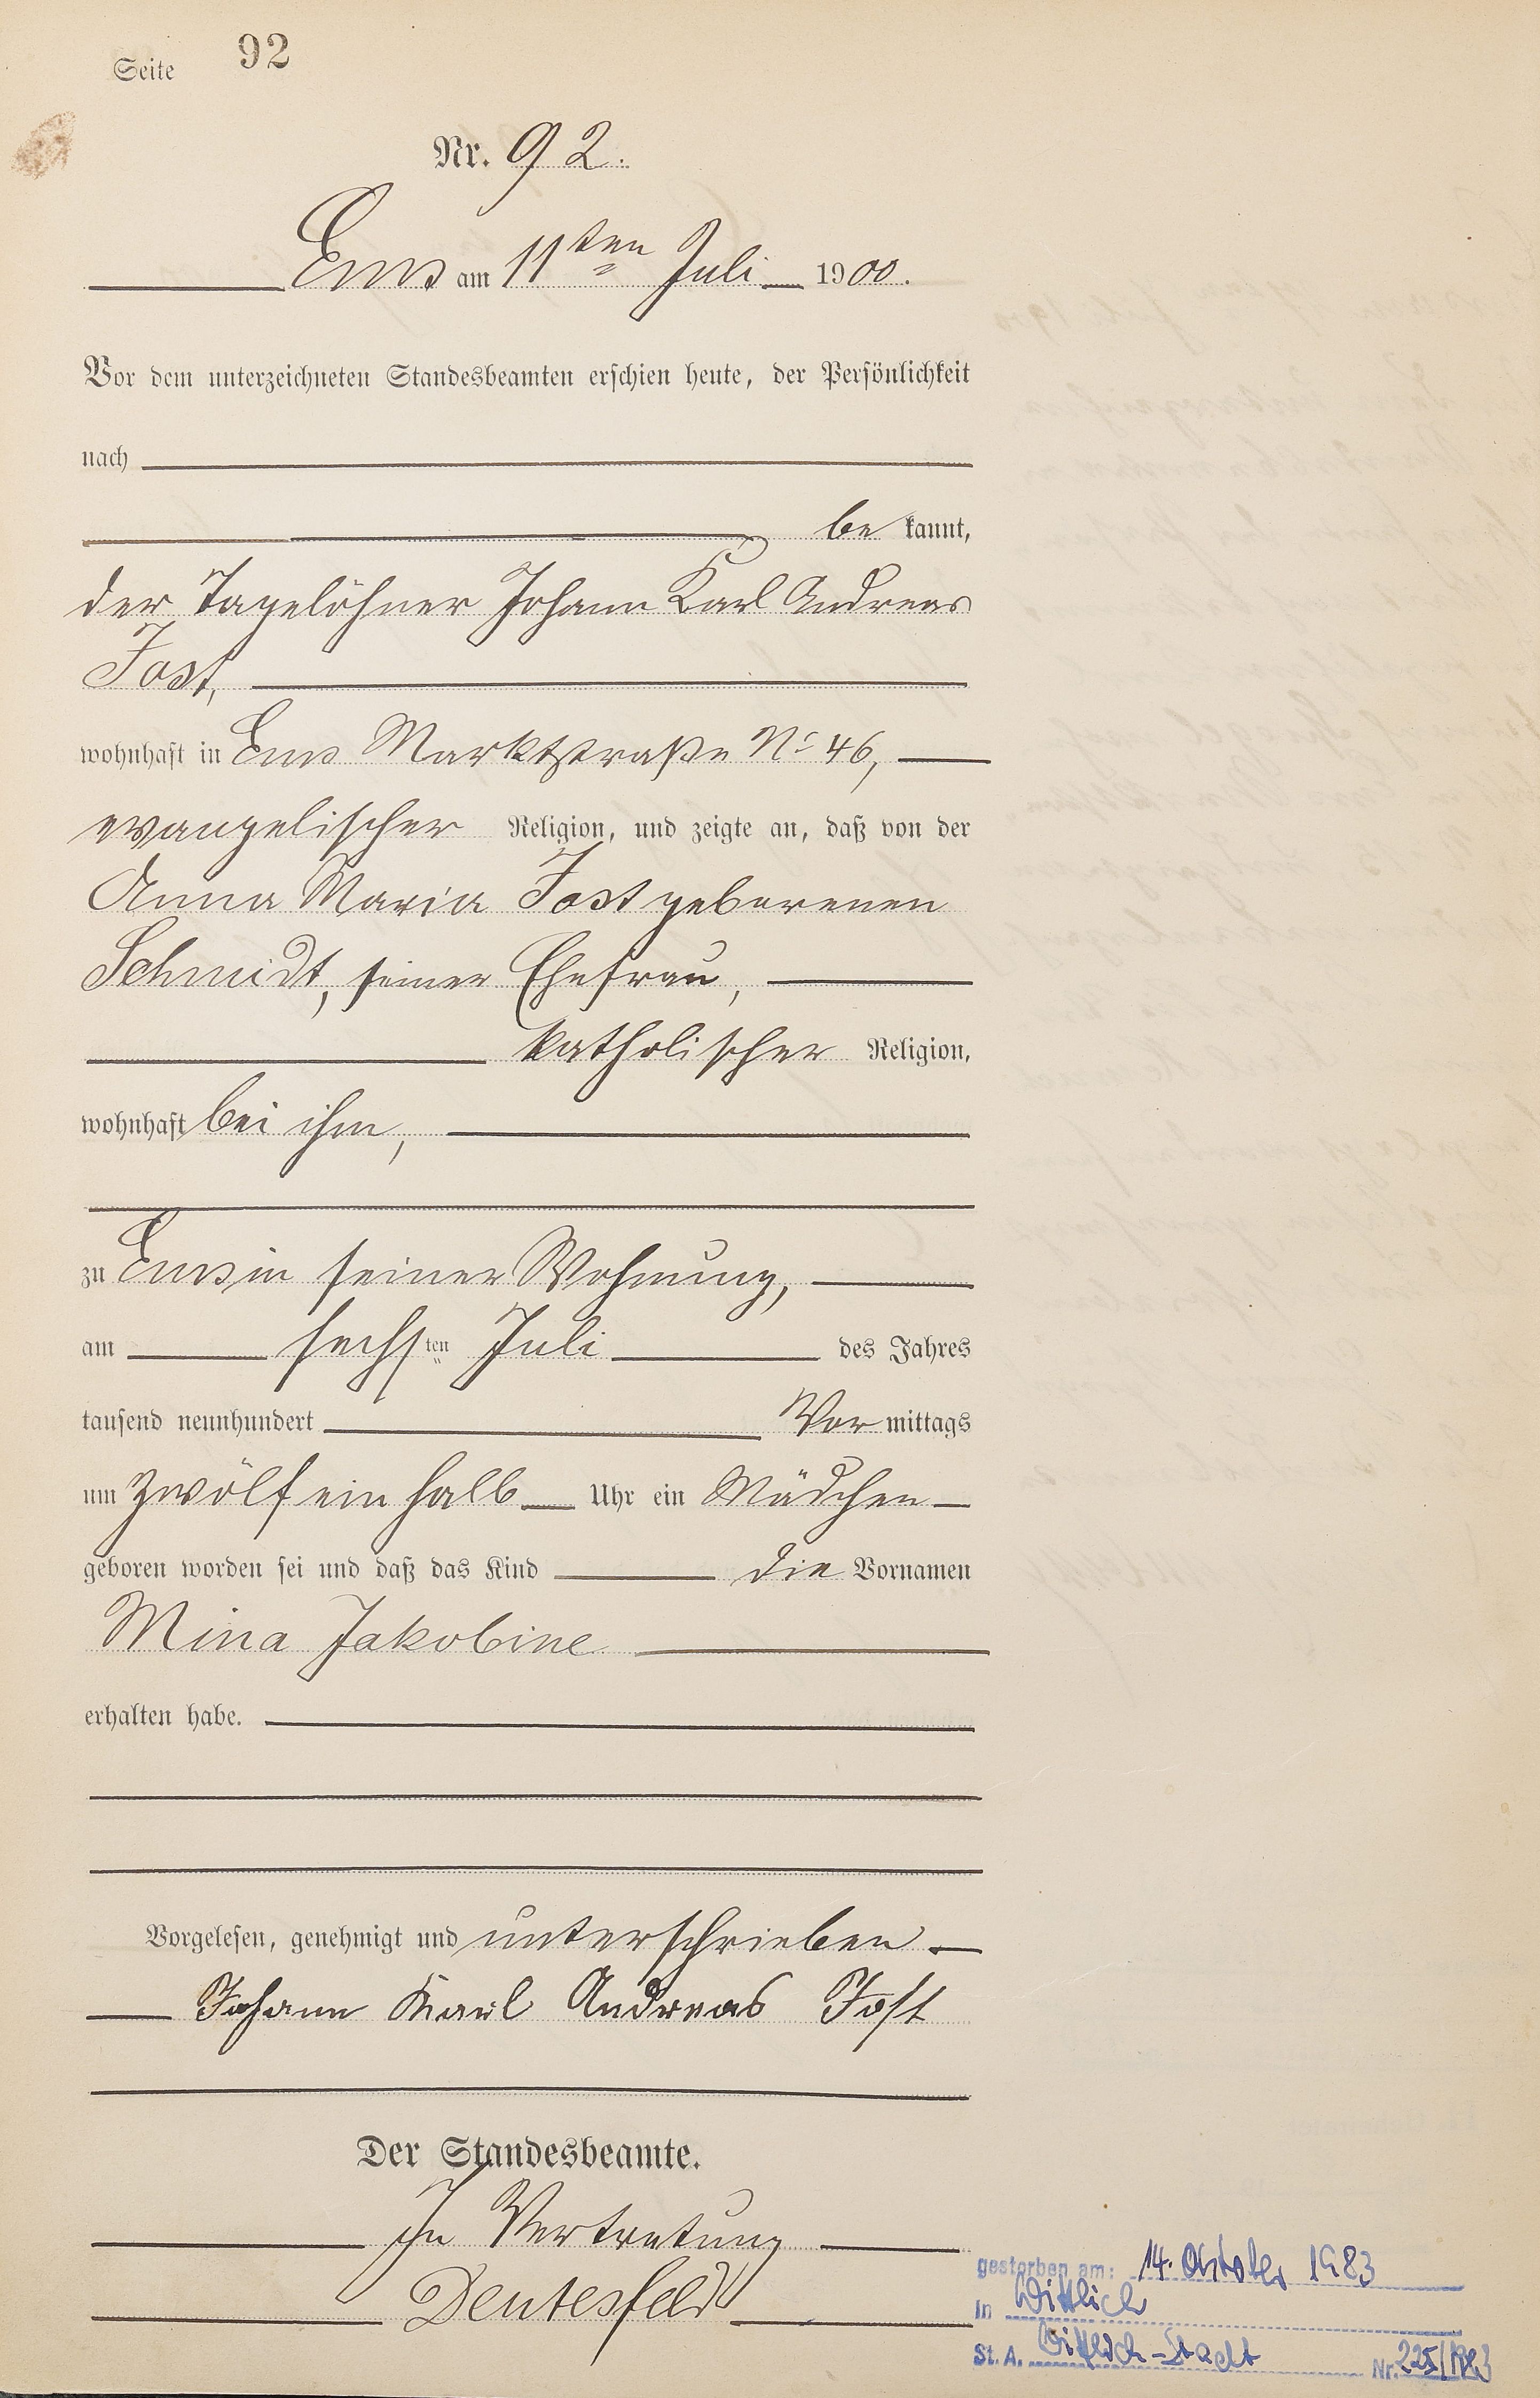 Seite 92
Nr. 92.
Ems am 11ten Juli 1900.
Vor dem unterzeichneten Standesbeamten erschien heute, der Persönlichkeit
nach
be kannt,
der Tagelöhner Johann Karl Andreas
Jost,
wohnhaft in Ems Marktstraße No 46,
evangelischer Religion, und zeigte an, daß von der
Anna Maria Jost geborenen
Schmidt, seiner Ehefrau,
katholischer Religion,
wohnhaft bei ihm,
zu Ems in seiner Wohnung,
am sechsten Juli des Jahres
tausend neunhundert Vor mittags
um zwölf ein halb Uhr ein Mädchen
geboren worden sei und daß das Kind die Vornamen
Mina Jakobine
erhalten habe.
Vorgelesen, genehmigt und unterschrieben
Johann Karl Andreas Jost
Der Standesbeamte.
In Vertretung
Deutesfeld
gestorben am: 14. Oktober 1983
in Wittlich
St. A. Wittlich-Stadt Nr. 225/1983